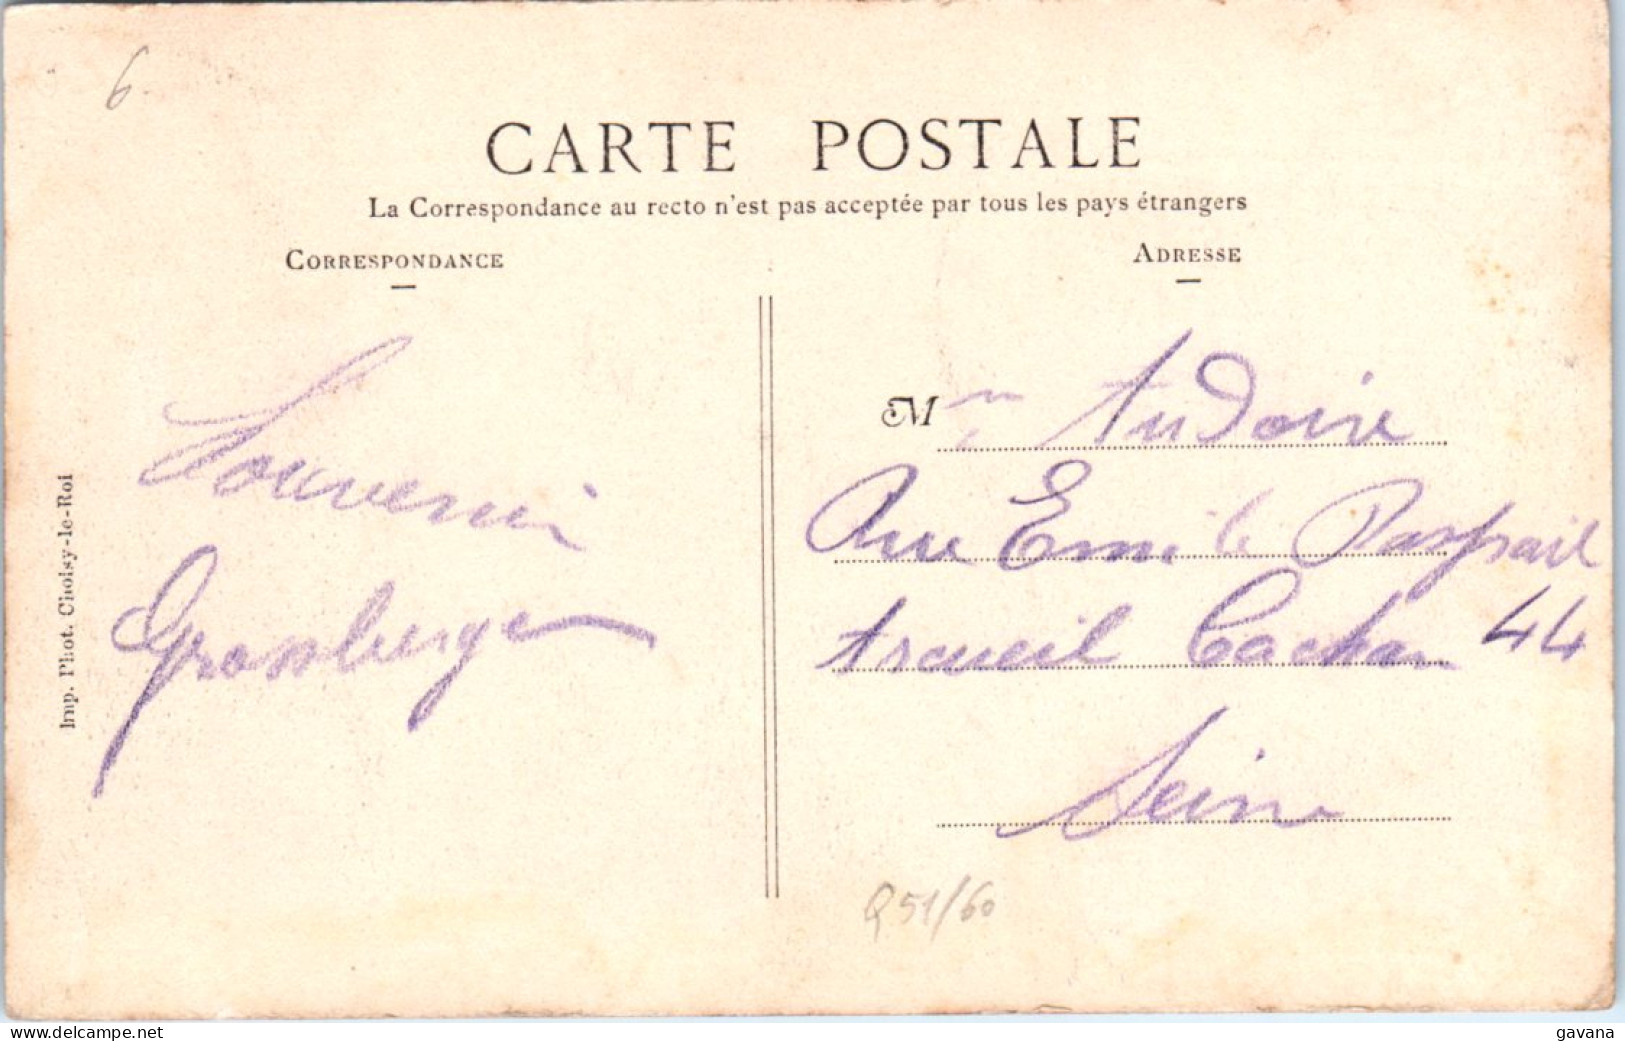 6.
CARTE POSTALE
La Correspondance au recto n'est pas acceptée par tous les pays étrangers
CORRESPONDANCE
ADRESSE
Souvenir
Imp. Phot. Choisy-le-Roi
M
Audoire
Rue Emile Raspail
Arcueil Cachan 44
Seine
Q51/60
delcampe.net
gavana